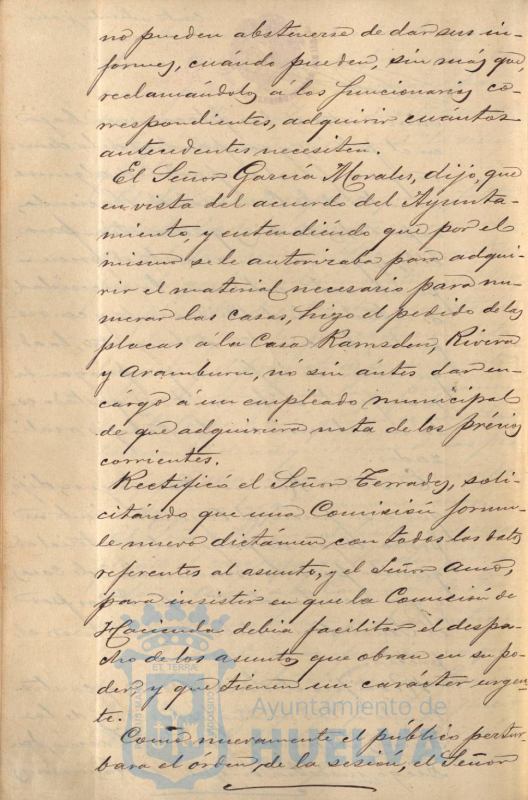 no pueden abstenerse de dar sus in-
formes, cuándo pueden, sin más que,
reclamándolos á los funcionarios co-
rrespondientes, adquirir cuántos
antecedentes necesiten.
El Señor García Morales, dijo, que
en vista del acuerdo del Ayunta-
miento, y entendiéndo que por el
mismo se le autorizaba para adqui-
rir el material necesario para nu-
merar las casas, hizo el pedido de las
placas á la Casa Ramsden, Rivera
y Aramburu, nó sin ántes dar en-
cargo á un empleado municipal
de que adquiriera nota de los précios
corrientes.
Rectificó el Señor Terrades, soli-
citándo que una Comisión formu-
le nuevo dictámen con todos los datos
referentes al asunto, y el Señor
para insistir en que la Comisión de
Hacienda debia facilitar el despa-
cho de los asuntos que obran en su po-
der, y que tienen un carácter urgen-
te.
Como nuevamente el público pertur-
bara el orden de la sesión, el Señor
EL TERRA
Ayuntamiento de
HUELVA